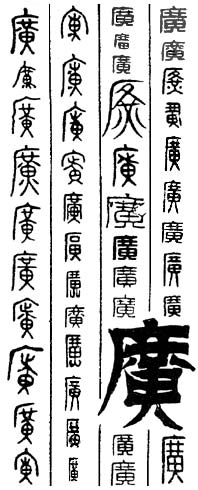 廣廣廣廣廣廣廣廣
廣廣廣廣廣廣廣廣廣廣
廣廣廣廣廣廣廣廣廣廣廣廣
廣廣廣廣廣廣廣廣廣廣